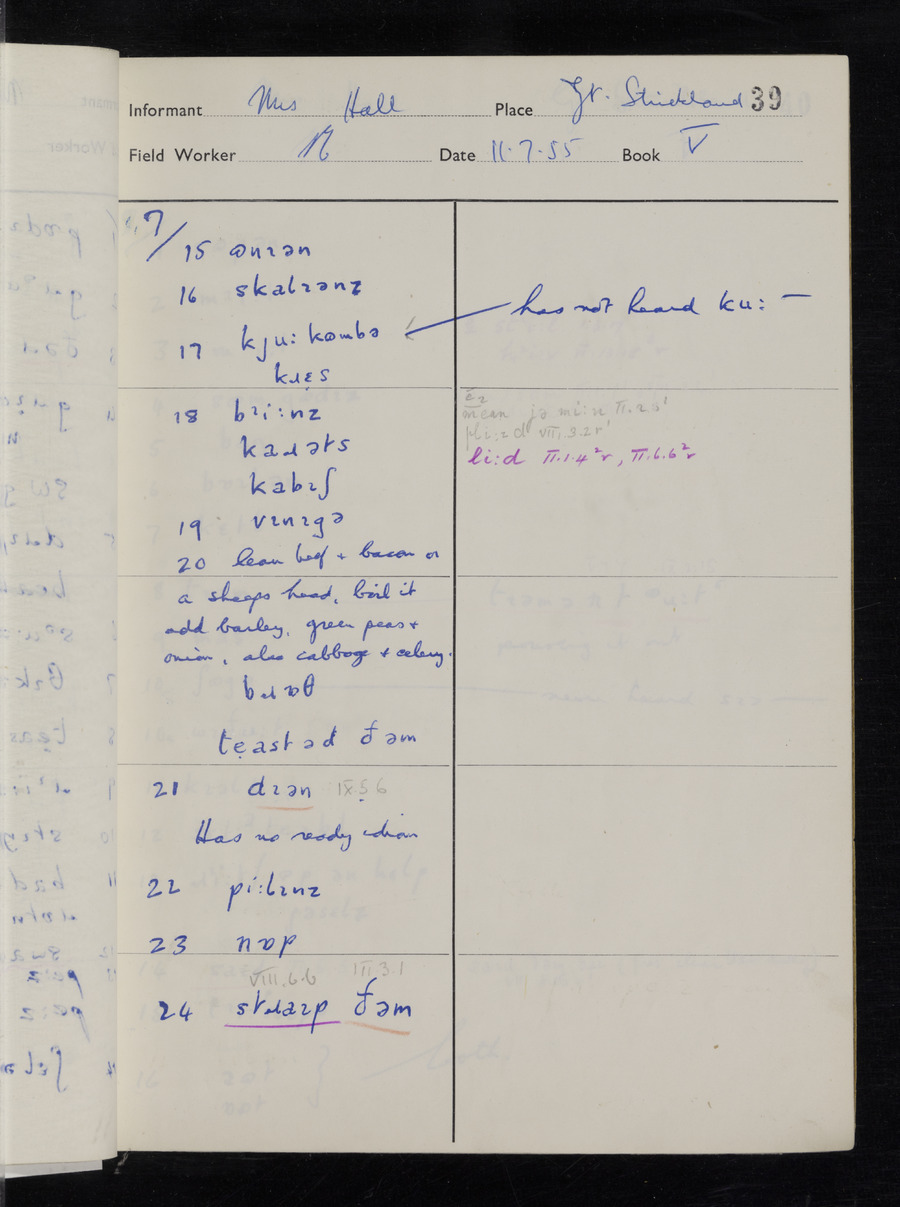 Informant Mrs Hall Place Gt. Strickland 39
Field Worker Date 11.7.55 Book V
7/
15 ənɪən
16 skalɪənz
17 kjuːkombə has not heard kuː —
kɹɛs
18 bɪiːnz
mean jə miːn II.2.3'
pliːzd VII.3.2r'
kaɹəts liːd II.1.4²r, II.6.6²r
kabɪʃ
19 vɪnɪgə
20 lean beef + bacon or
a sheeps head, boil it
add barley, green peas +
onion, also cabbage + celery.
bɹɒθ
tẹastəd ðəm
21 dɪən IX.5.6
Has no ready idiom
22 piːlɪnz
23 nɒp
VIII.6.6 III.3.1
24 stɹaɪp ðəm